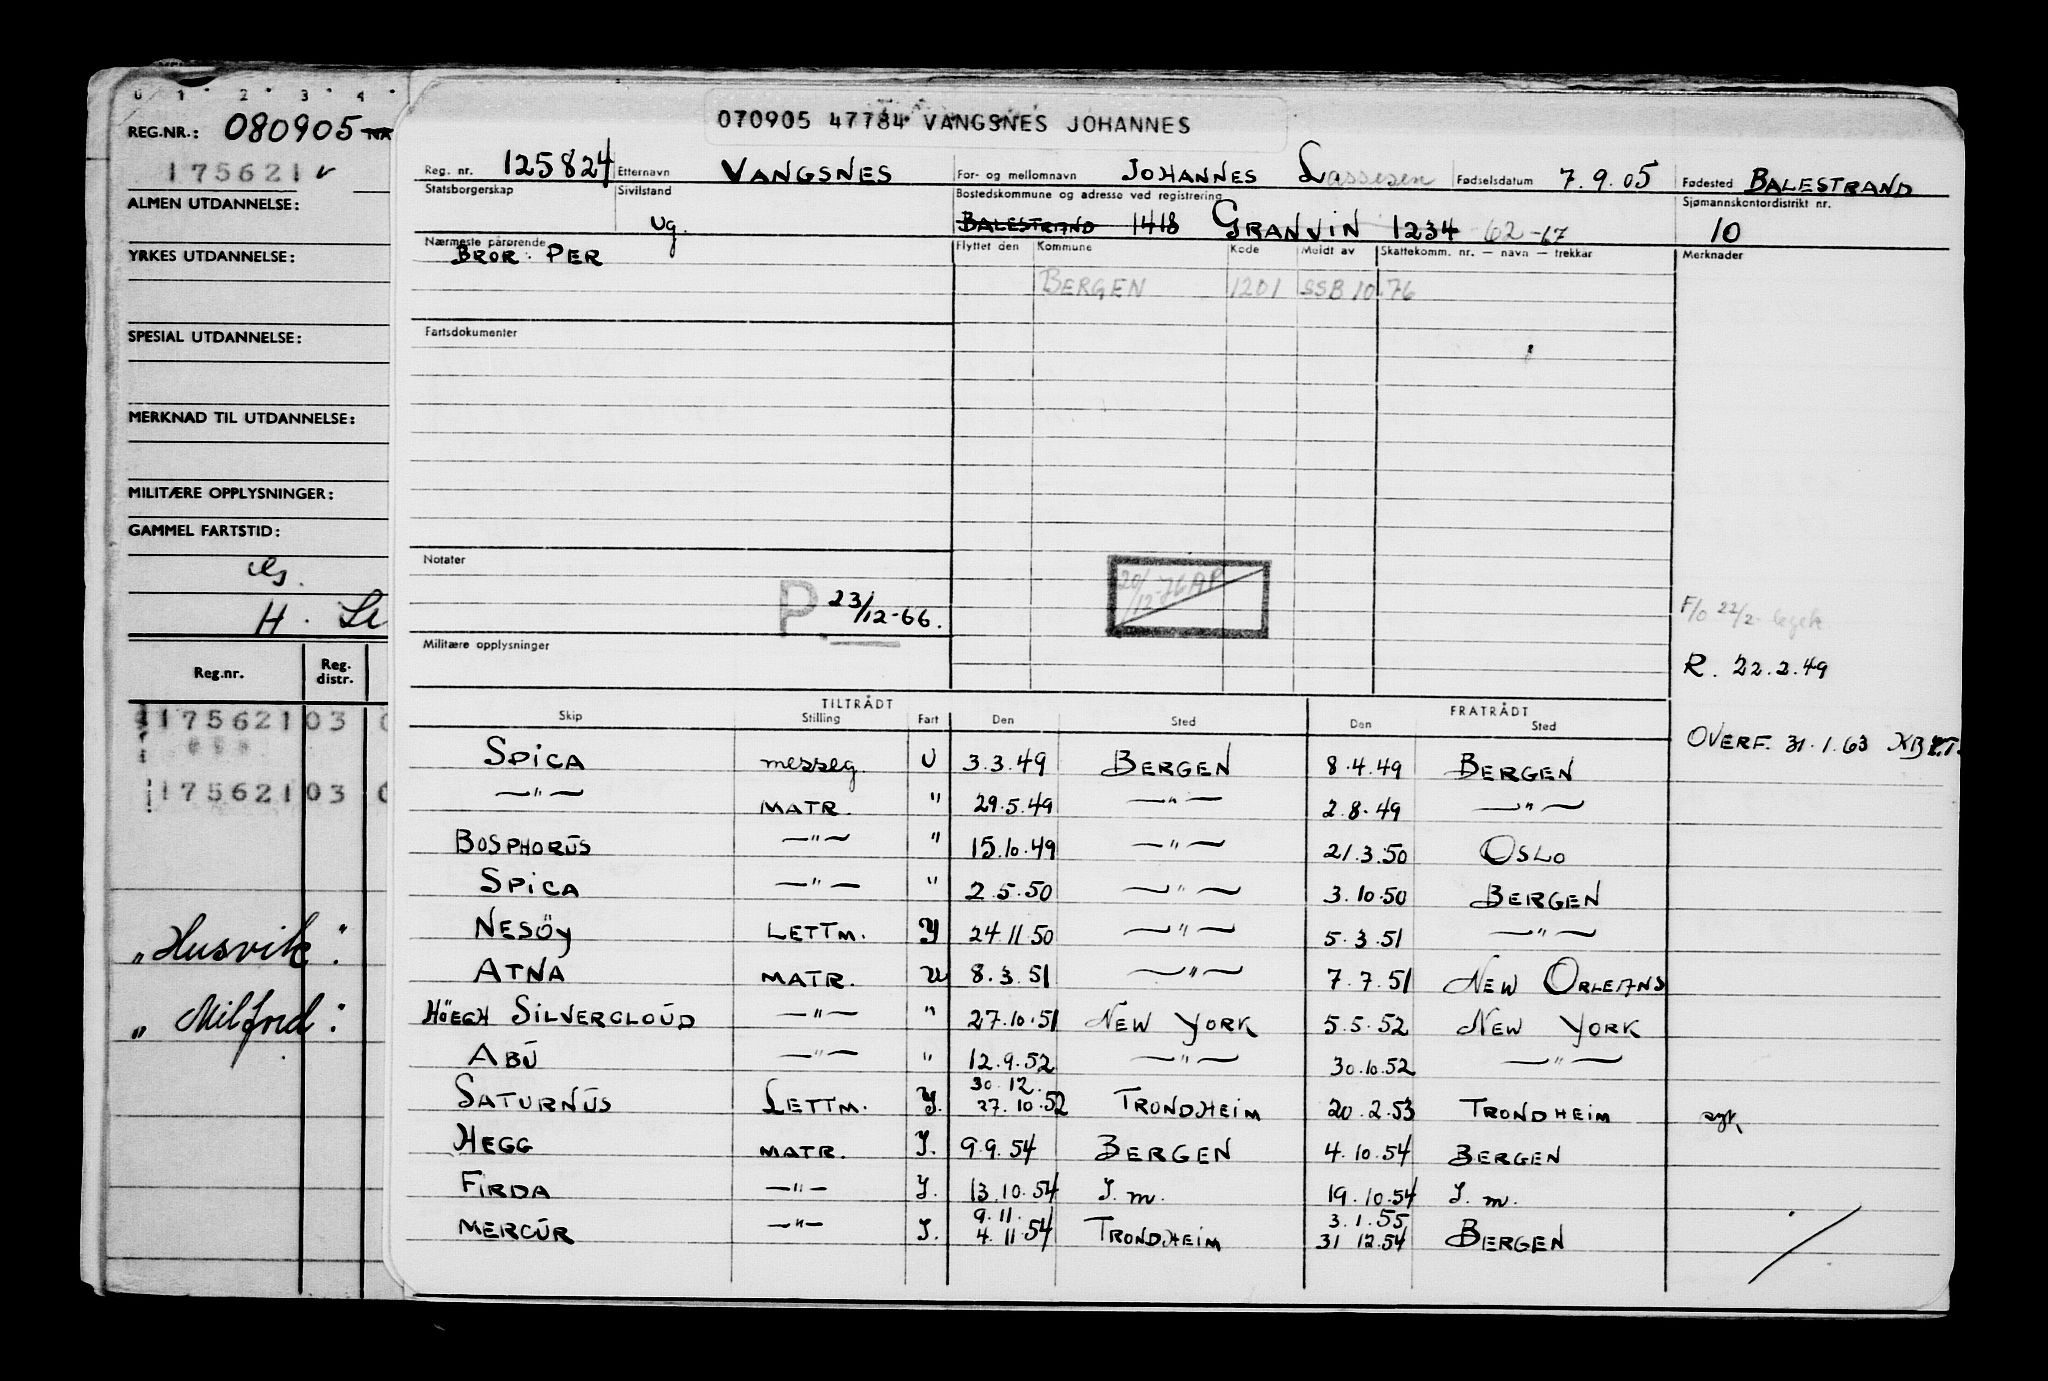 0 1 2 3 4
REG.NR.: 080905
175621
ALMEN UTDANNELSE:
YRKES UTDANNELSE:
SPESIAL UTDANNELSE:
MERKNAD TIL UTDANNELSE:
MILITÆRE OPPLYSNINGER:
GAMMEL FARTSTID:
H.
Reg.nr. Reg. distr.
175621 03
175621 03
"Husvik":
"Milford":
070905 47784 VANGSNES JOHANNES
Reg. nr. 125824 Etternavn VANGSNES For- og mellomnavn JOHANNES Lassesen Fødselsdatum 7.9.05 Fødested BALESTRAND
Statsborgerskap Sivilstand ug. Bostedskommune og adresse ved registrering BALESTRAND 1418 GRANVIN 1234 -62-67 Sjømannskontordistrikt nr. 10
Nærmeste pårørende Flyttet den Kommune Kode Meldt av Skattekomm. nr. — navn — trekkar Merknader
BROR PER
BERGEN 1201 SSB 10.76
Fartsdokumenter
Notater
P 23/12-66.
20/12-76 AP
Militære opplysninger
F/O 22/2-
R. 22.2.49
OVERF. 31.1.63
TILTRÅDT FRATRÅDT
Skip Stilling Fart Den Sted Den Sted
SPICA messeg. U 3.3.49 BERGEN 8.4.49 BERGEN
—"— MATR. " 29.5.49 —"— 2.8.49 —"—
BOSPHORUS —"— " 15.10.49 —"— 21.3.50 OSLO
SPICA —"— " 2.5.50 —"— 3.10.50 BERGEN
NESÖY LETTM. I 24.11.50 —"— 5.3.51 —"—
ATNA MATR. U 8.3.51 —"— 7.7.51 NEW ORLEANS
HÖEGH SILVERCLOUD —"— " 27.10.51 NEW YORK 5.5.52 NEW YORK
ABU —"— " 12.9.52 —"— 30.10.52 —"—
30.12.
SATURNUS LETTM. I. 27.10.52 TRONDHEIM 20.2.53 TRONDHEIM
HEGG MATR. I. 9.9.54 BERGEN 4.10.54 BERGEN
FIRDA —"— I. 13.10.54 I.m. 19.10.54 I.m.
9.11. 3.1.55
MERCUR —"— I. 4.11.54 TRONDHEIM 31.12.54 BERGEN